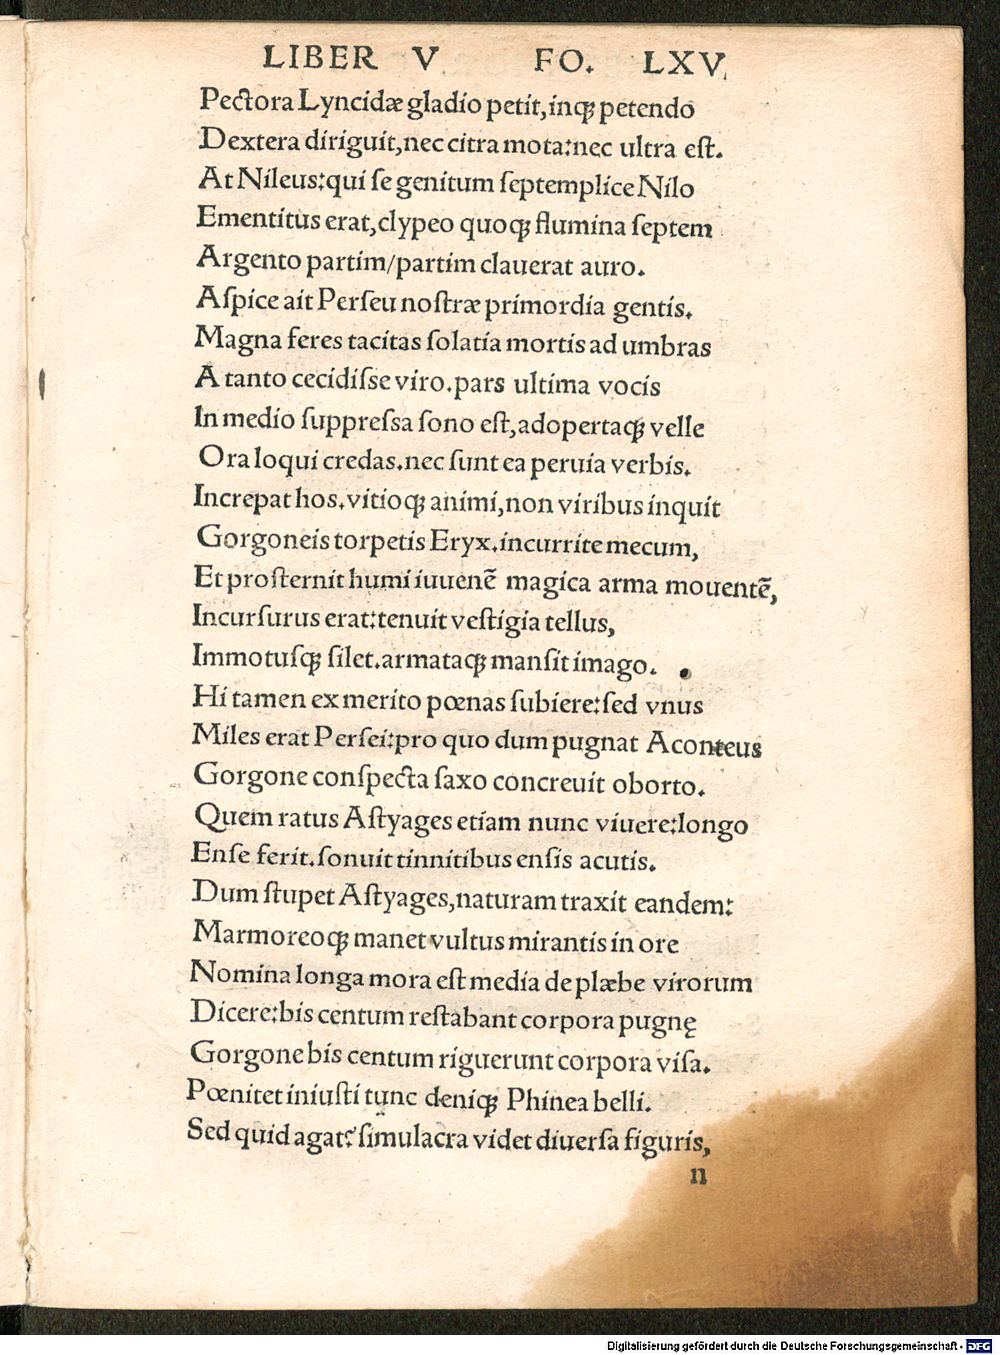 LIBER V FO. LXV.
Pectora Lyncidæ gladio petit,inqꝫ petendo
Dextera diriguit,nec citra mota:nec ultra est.
At Nileus:qui ſe genitum ſeptemplice Nilo
Ementitus erat,clypeo quoqꝫ flumina ſeptem
Argento partim/partim clauerat auro.
Aſpice ait Perſeu noſtræ primordia gentis.
Magna feres tacitas ſolatia mortis ad umbras
A tanto cecidiſſe viro.pars ultima vocis
In medio ſuppreſſa ſono eſt,adopertaqꝫ velle
Ora loqui credas.nec ſunt ea peruia verbis.
Increpat hos.vitioqꝫ animi,non viribus inquit
Gorgoneis torpetis Eryx.incurrite mecum,
Et proſternit humi iuuenē magica arma mouentē,
Incurſurus erat:tenuit veſtigia tellus,
Immotuſqꝫ ſilet.armataqꝫ manſit imago.
Hi tamen ex merito pœnas ſubiere:ſed vnus
Miles erat Perſei:pro quo dum pugnat Aconteus
Gorgone conſpecta ſaxo concreuit oborto.
Quem ratus Aſtyages etiam nunc viuere:longo
Enſe ferit.ſonuit tinnitibus enſis acutis.
Dum ſtupet Aſtyages,naturam traxit eandem:
Marmoreoqꝫ manet vultus mirantis in ore
Nomina longa mora eſt media de plæbe virorum
Dicere:bis centum reſtabant corpora pugnę
Gorgone bis centum riguerunt corpora viſa.
Pœnitet iniuſti tunc deniqꝫ Phinea belli.
Sed quid agat?ſimulacra videt diuerſa figuris,
n
Digitalisierung gefördert durch die Deutsche Forschungsgemeinschaft - DFG